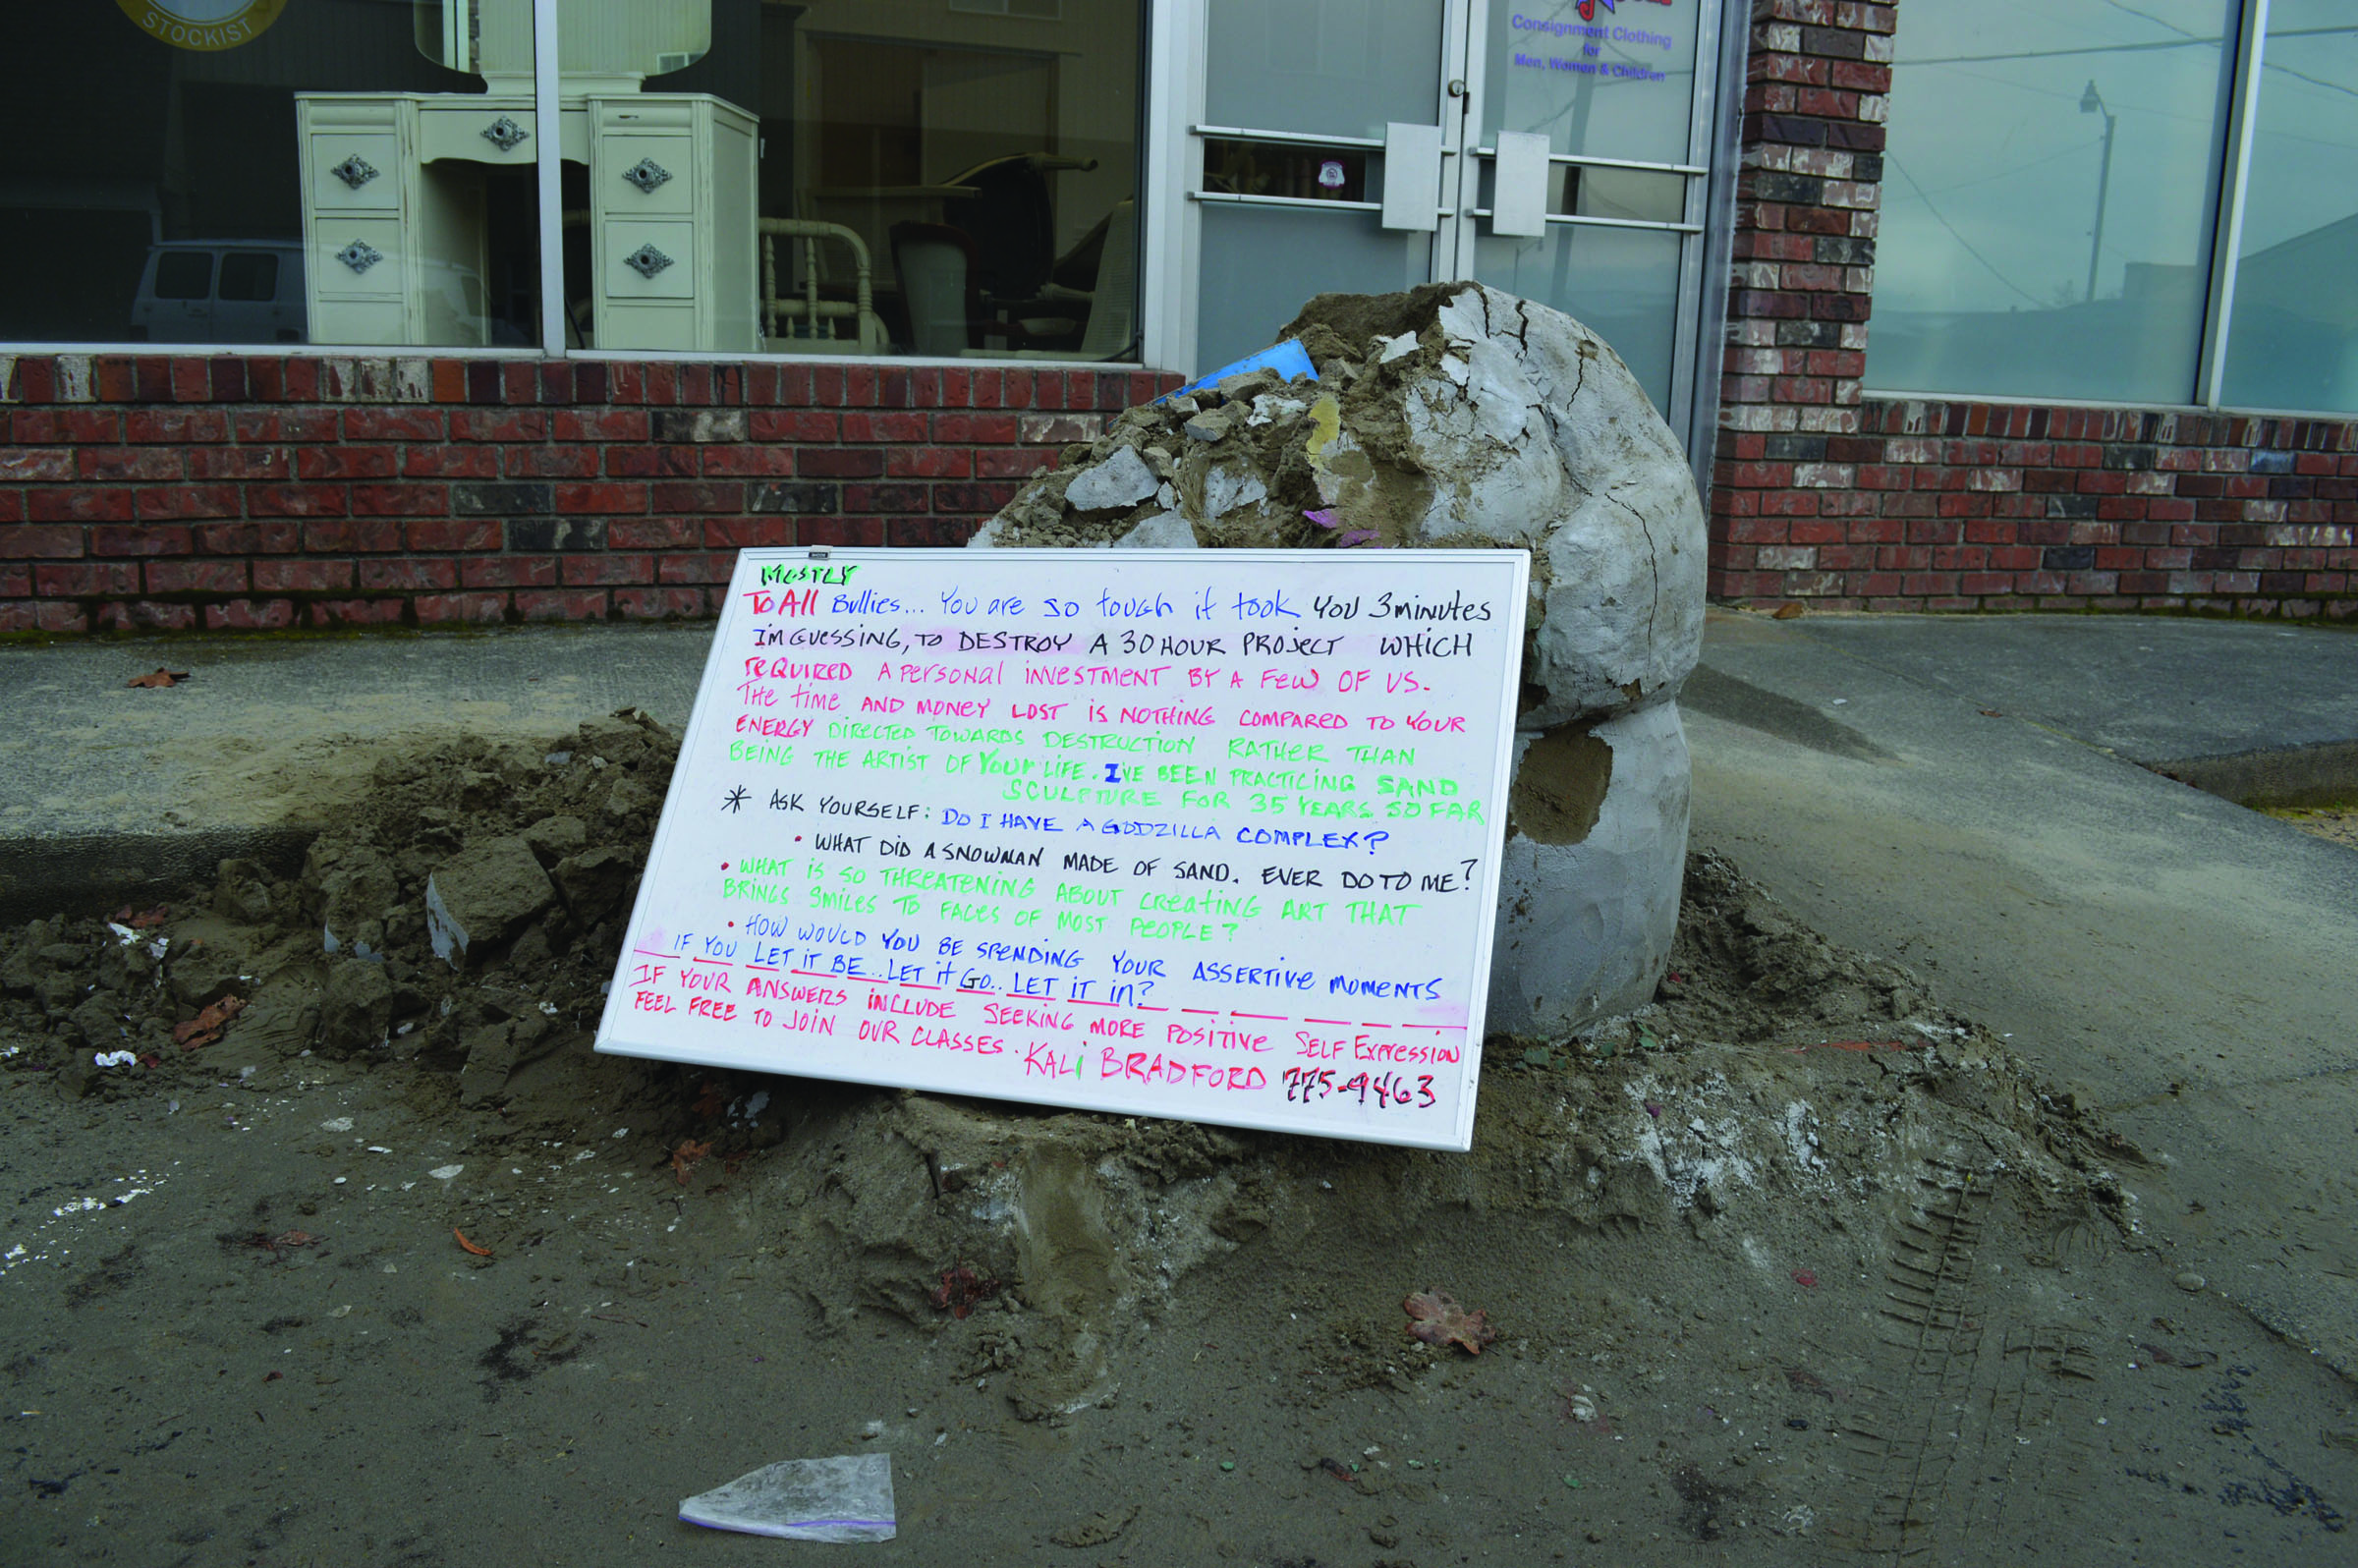 STOCKIST
Consignment Clothing
for
Men, Women & Children
MOSTLY
To All Bullies... You are so tough it took you 3 minutes
I'm guessing, to DESTROY A 30 HOUR PROJECT WHICH
REQUIRED A PERSONAL INVESTMENT BY A FEW OF US.
THE time AND MONEY LOST IS NOTHING COMPARED TO YOUR
ENERGY DIRECTED TOWARDS DESTRUCTION RATHER THAN
BEING THE ARTIST OF YOUR LIFE. I'VE BEEN PRACTICING SAND
SCULPTURE FOR 35 YEARS SO FAR
* ASK YOURSELF: DO I HAVE A GODZILLA COMPLEX?
• WHAT DID A SNOWMAN MADE OF SAND. EVER DO TO ME?
• WHAT IS SO THREATENING ABOUT CREATING ART THAT
BRINGS SMILES TO FACES OF MOST PEOPLE?
• HOW WOULD YOU BE SPENDING YOUR ASSERTIVE MOMENTS
IF YOU LET IT BE.. LET it GO.. LET IT in?
IF YOUR ANSWERS INCLUDE SEEKING MORE POSITIVE SELF EXPRESSION
FEEL FREE TO JOIN OUR CLASSES. KALI BRADFORD 775-9463